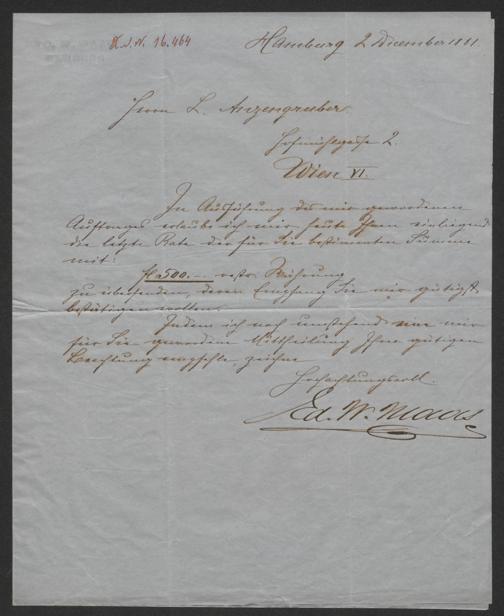 H.I.N. 16.464
Hamburg 2 Dicember 1881.
Herrn L. Anzengruber
Hofmühlgasse 2.
Wien VI.
In Ausführung des mir gewordenen
Auftrages erlaube ich mir heute Ihnen einliegend
die letzte Rate der für Sie bestimmten Summe
mit:
500.– Währung
zu übersenden, deren Empfang Sie mir gütigst
bestätigen wollen.
Indem ich noch umstehend eine mir
für Sie gewordene Mittheilung Ihrer gütigen
Beachtung empfehle, zeichne
Hochachtungsvoll
Ed. W. Maas